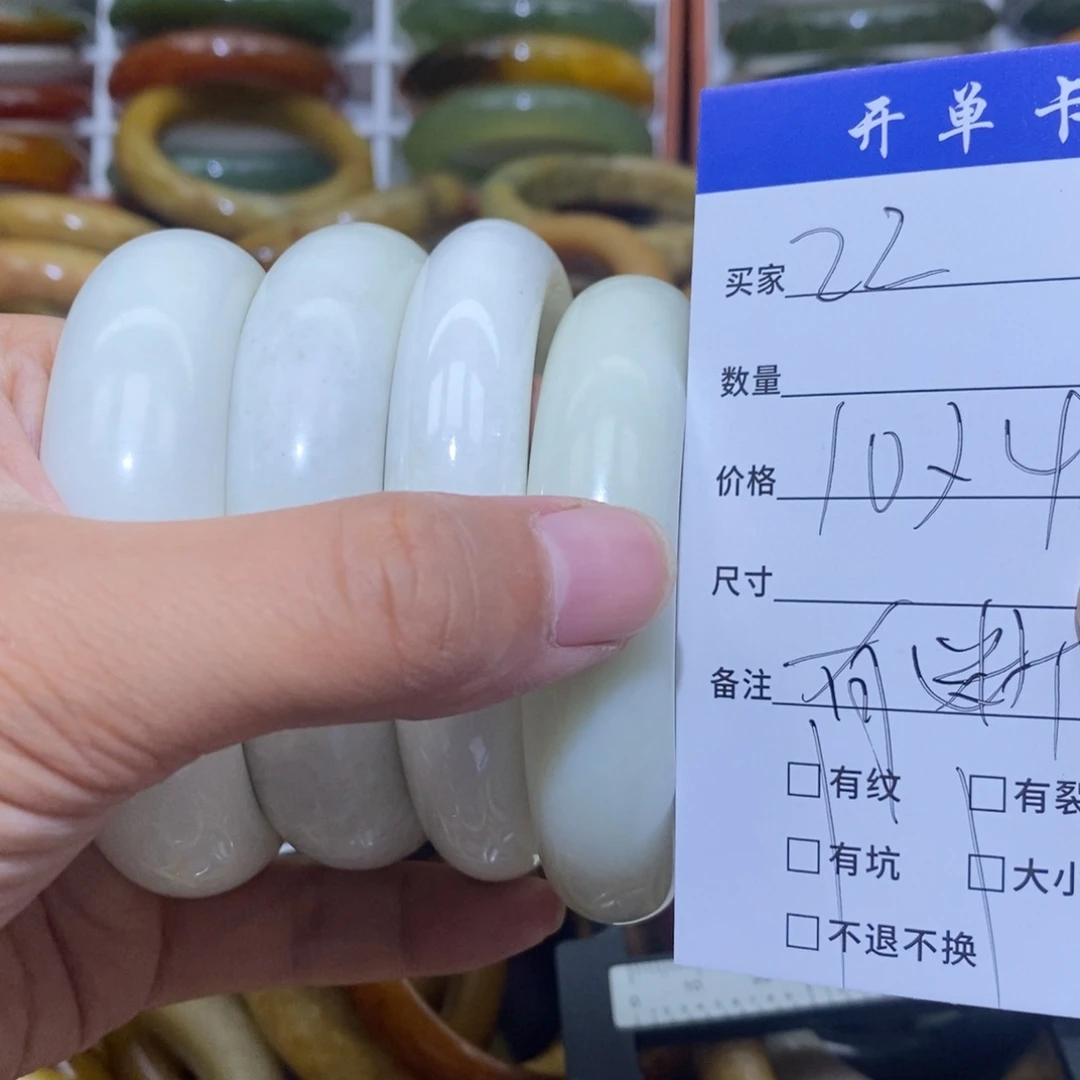 开单卡
买家 22
数量
价格 10x4
尺寸
备注 有
□有纹 □有裂
□有坑 □大小
□不退不换